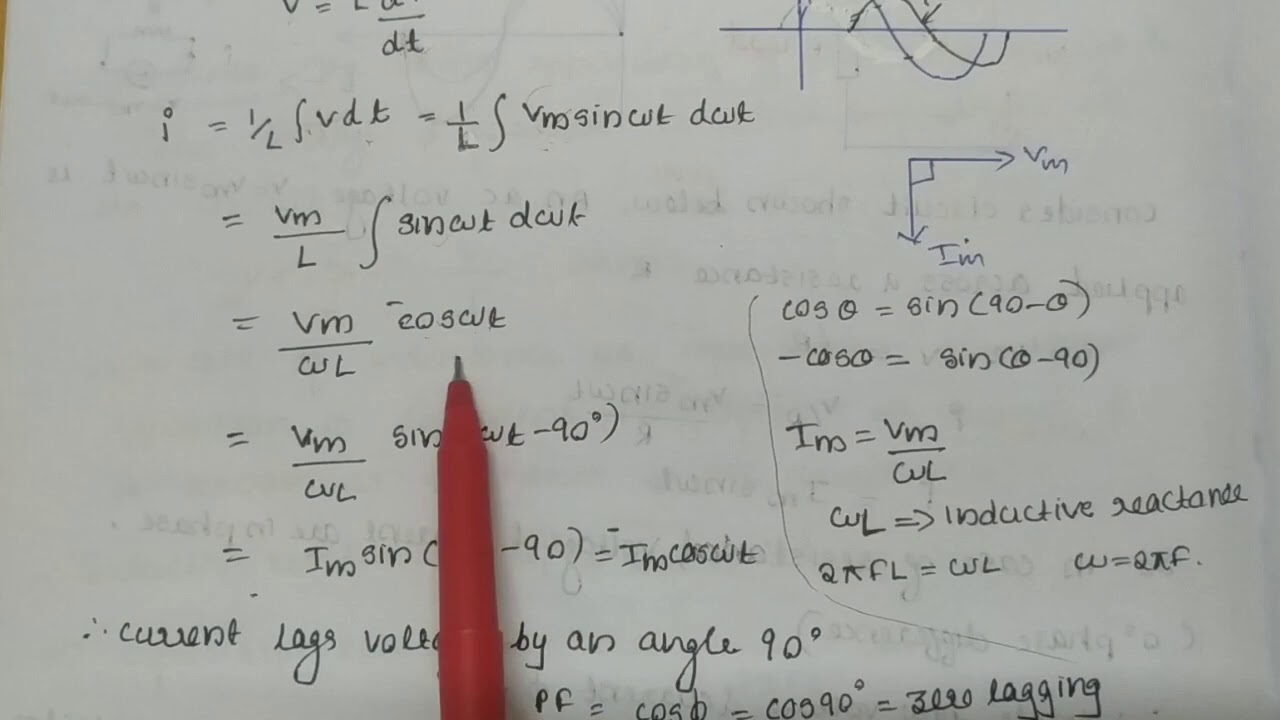 V = L di/dt
i = 1/L ∫ v dt = 1/L ∫ Vm sin ωt dωt
= Vm/L ∫ sin ωt dωt
= Vm/ωL -cos ωt
= Vm/ωL sin ωt -90°)
= Im sin ( -90) = -Im cos ωt
∴ current lags by an angle 90°
PF = cosϕ = cos90° = zero lagging
Vm
Im
cosθ = sin(90-θ)
-cosθ = sin(θ-90)
Im = Vm/ωL
ωL => inductive reactance
2πfL = ωL ω=2πf.